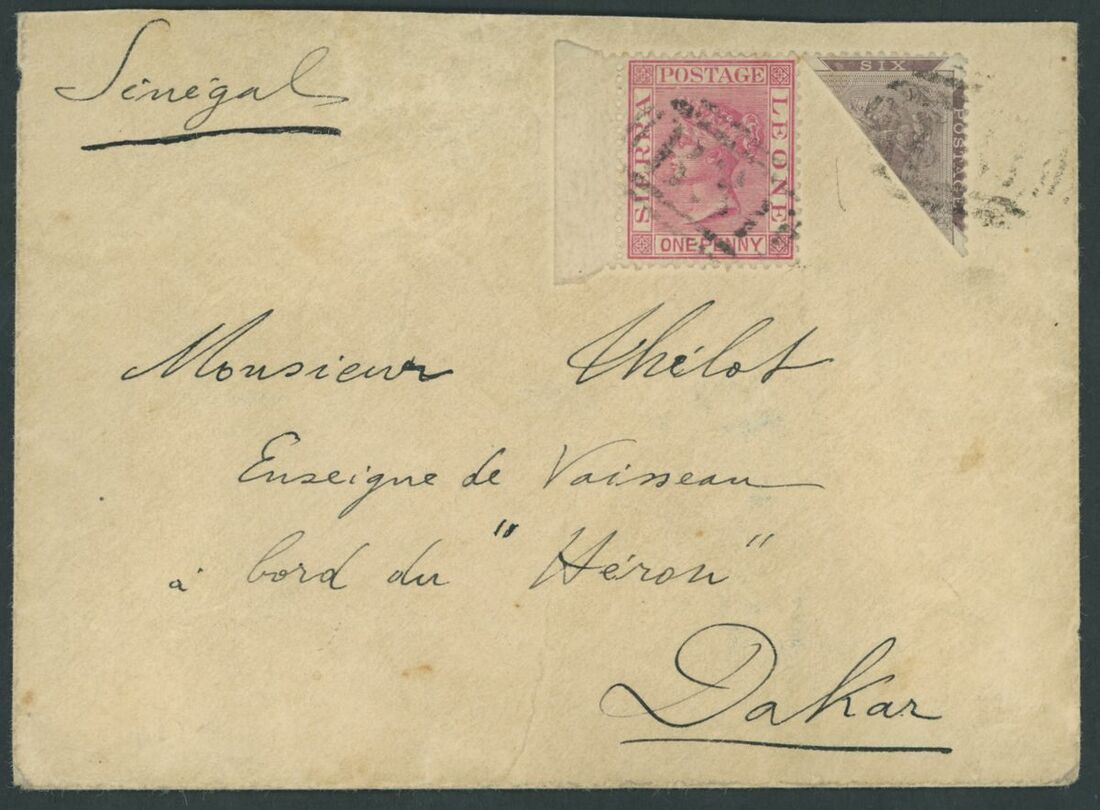 Sénégal
POSTAGE
SIERRA
LEONE
ONE PENNY
SIX
POSTAGE
Monsieur Thélot
Enseigne de Vaisseau
à bord du "Héron"
Dakar